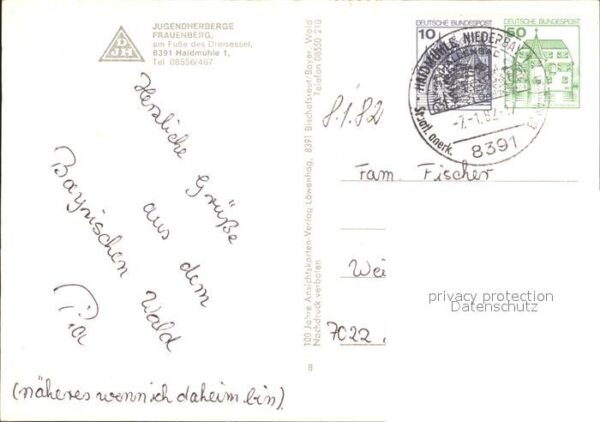 JUGENDHERBERGE
FRAUENBERG,
am Fuße des Dreisessel,
8391 Haidmühle 1,
Tel 08556/467
DJH
Herzliche Grüße
aus dem
Bayrischen Wald
Pia
(näheres wenn ich daheim bin)
100 Jahre Ansichtskarten-Verlag Löwenhag, 8391 Bischofsreut/Bayer. Wald
Nachdruck verboten
Telefon 08550 210
8
DEUTSCHE BUNDESPOST
10
DEUTSCHE BUNDESPOST
50
HAIDMÜHLE, NIEDERBAY
Staatl. anerk.
-7.-1.82-17
8391
8.1.82
Fam. Fischer
Wei
7022
privacy protection
Datenschutz